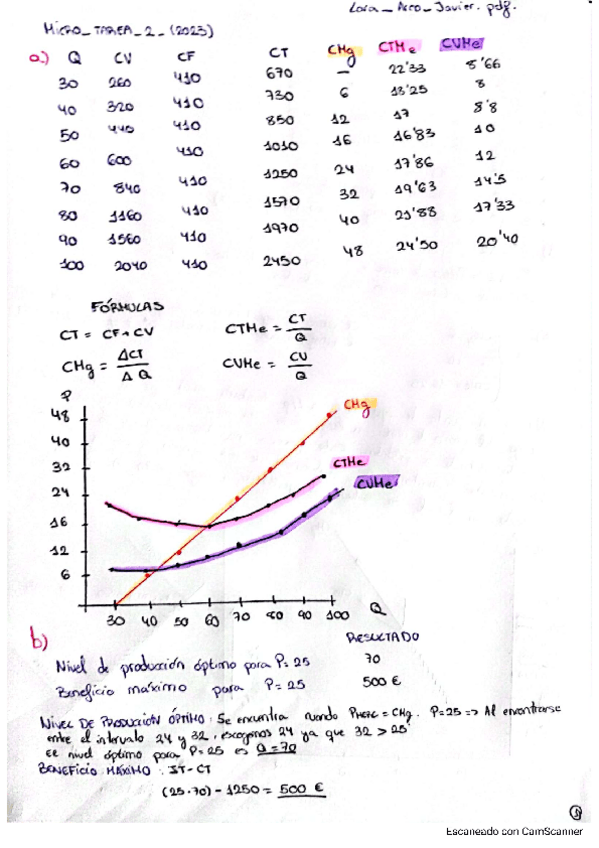 Lara_Arro_Javier.pdf.
MICRO_TAREA_2_(2023)
a) Q CV CF CT CHg CTMe CVMe
30 260 410 670 — 22'33 8'66
40 320 410 730 6 18'25 8
50 440 410 850 12 17 8'8
60 600 410 1010 16 16'83 10
70 840 410 1250 24 17'86 12
80 1160 410 1570 32 19'63 14'5
90 1560 410 1970 40 21'88 17'33
100 2040 410 2450 48 24'50 20'40
FÓRMULAS
CT = CF + CV CTMe = CT / Q
CHg = ΔCT / ΔQ CVMe = CV / Q
P
48
40
32
24
16
12
6
CHg
CTMe
CVMe
30 40 50 60 70 80 90 100 Q
b) RESULTADO
Nivel de producción óptimo para P=25 70
Beneficio máximo para P=25 500 €
NIVEL DE PRODUCCIÓN ÓPTIMO: Se encuentra cuando PMERC = CHg. P=25 => Al encontrarse
entre el intervalo 24 y 32, escogemos 24 ya que 32 > 25
el nivel óptimo para P=25 es Q=70
BENEFICIO MÁXIMO: IT-CT
(25·70) - 1250 = 500 €
1
Escaneado con CamScanner